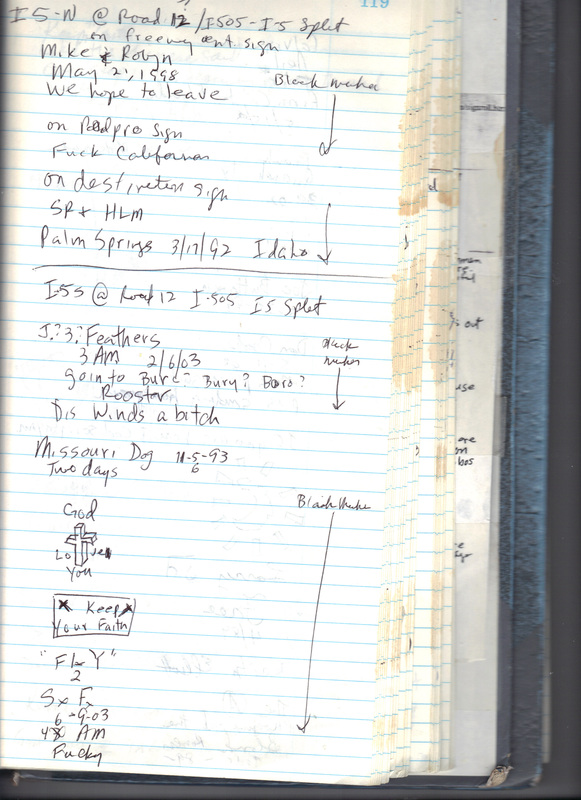 119
I5-N @ Road 12 / I505-I-5 Split
on freeway sign
Mike & Robyn
May 21, 1998
We hope to leave
Black marker
on Podpro sign
Fuck California
on destination sign
SR + HLM
Palm Springs 3/17/92 Idaho
I-5S @ Road 12 I-505 I5 Split
J.?3? Feathers
3 AM 2/6/03
goin to Bur-? Bury? Boro?
Rooster
Dis Winds a bitch
Black marker
Missouri Dog 11-5-93
6
Two days
Black marker
God
Lo ves
You
Keep
Your Faith
"FL Y"
2
Sx Fx
6-9-03
AM
Fucky